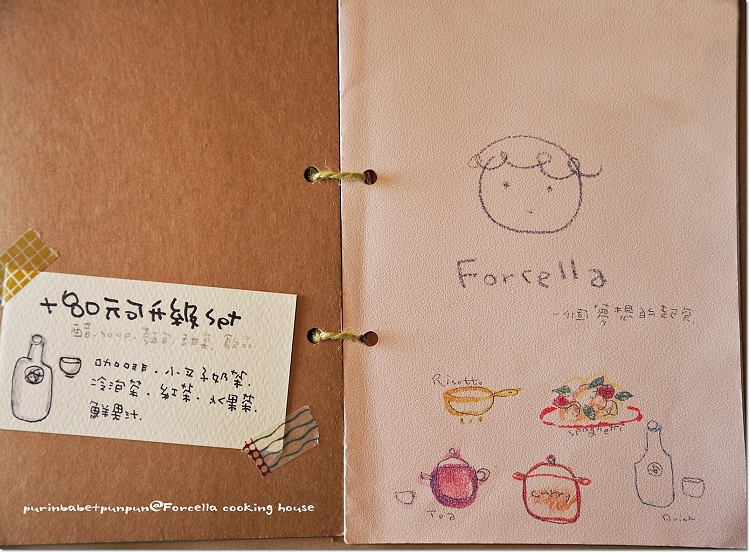 +80元可升級set
醋.soup.麵包.甜點.飲品
咖啡.小女子奶茶.
冷泡茶.紅茶.水果茶.
鮮果汁.
Forcella
一個夢想的起點
Risotto
spaghetti
Tea
curry
Drink
purinbabetpunpun@Forcella cooking house